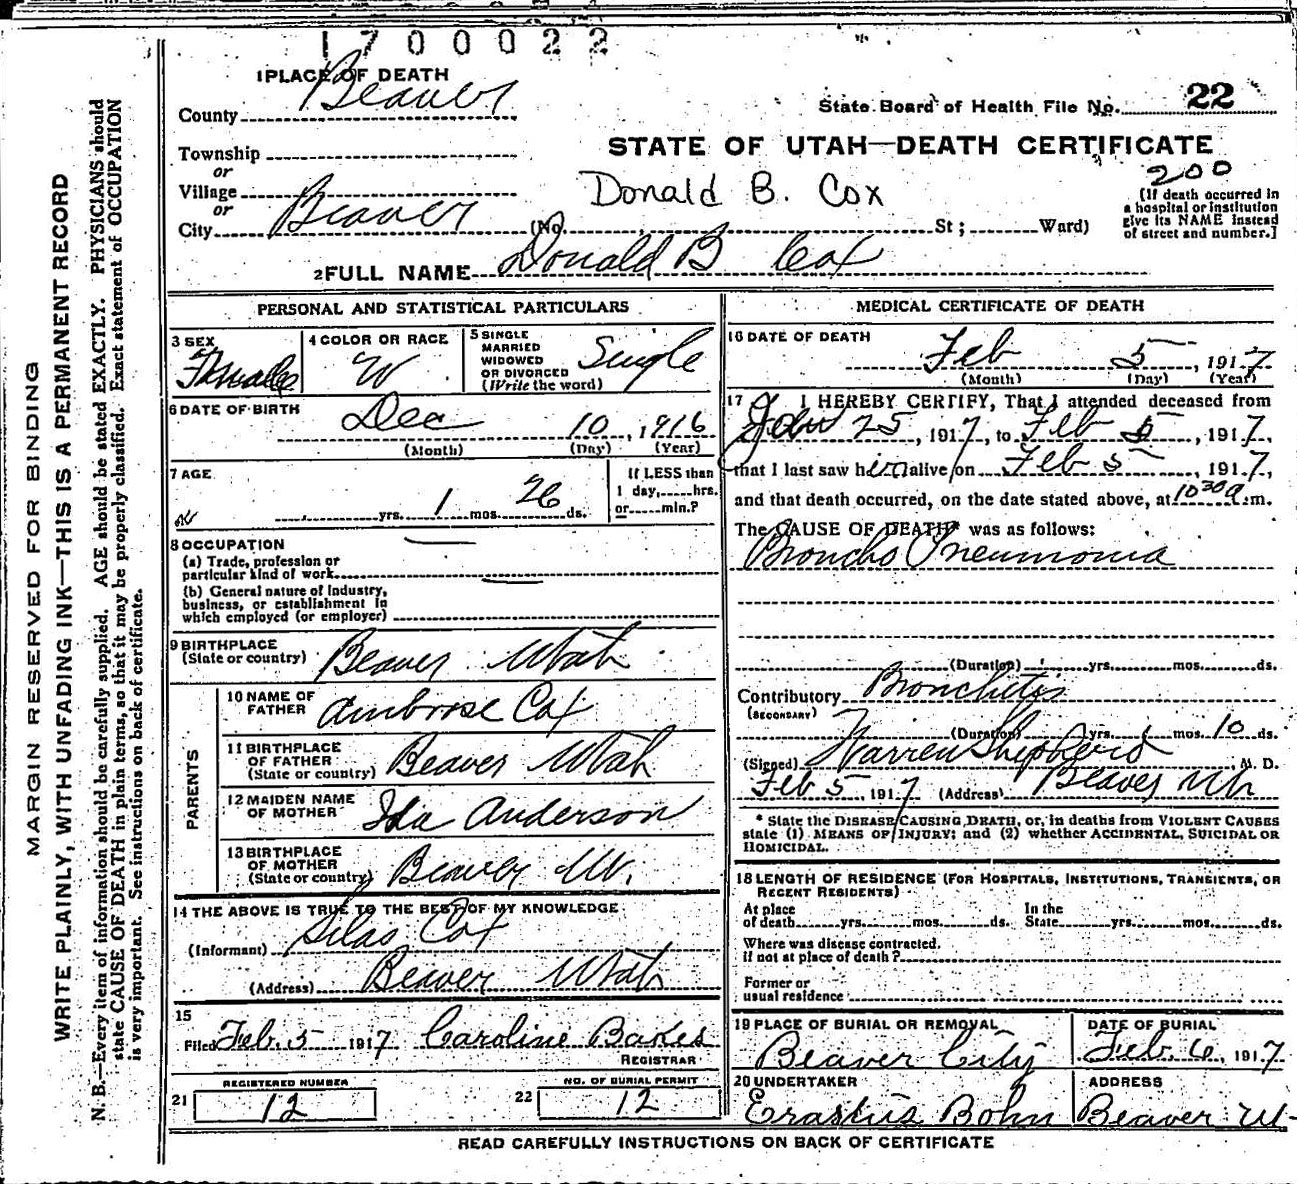 1700022
1 PLACE OF DEATH
County Beaver
State Board of Health File No. 22
STATE OF UTAH—DEATH CERTIFICATE
Township
or
Village
or
City Beaver
Donald B. Cox
200
(No. St; Ward)
(If death occurred in
a hospital or institution
give its NAME instead
of street and number.]
2 FULL NAME Donald B Cox
PERSONAL AND STATISTICAL PARTICULARS
3 SEX
4 COLOR OR RACE
W
5 SINGLE
MARRIED
WIDOWED
OR DIVORCED
(Write the word)
Single
6 DATE OF BIRTH
Dec 10, 1916
(Month) (Day) (Year)
7 AGE
yrs. 1 mos. 26 ds.
If LESS than
1 day, hrs.
or min.?
8 OCCUPATION
(a) Trade, profession or
particular kind of work
(b) General nature of industry,
business, or establishment in
which employed (or employer)
9 BIRTHPLACE
(State or country) Beaver Utah
PARENTS
10 NAME OF
FATHER Ambrose Cox
11 BIRTHPLACE
OF FATHER
(State or country) Beaver Utah
12 MAIDEN NAME
OF MOTHER Ida Anderson
13 BIRTHPLACE
OF MOTHER
(State or country) Beaver Ut.
14 THE ABOVE IS TRUE TO THE BEST OF MY KNOWLEDGE
(Informant) Silas Cox
(Address) Beaver Utah
15
Filed Feb. 5 1917 Caroline Bakes
REGISTRAR
REGISTERED NUMBER
21 12
NO. OF BURIAL PERMIT
22 12
MEDICAL CERTIFICATE OF DEATH
16 DATE OF DEATH
Feb 5, 1917
(Month) (Day) (Year)
17 I HEREBY CERTIFY, That I attended deceased from
Jan 25, 1917, to Feb 5, 1917,
that I last saw him alive on Feb 5, 1917,
and that death occurred, on the date stated above, at 10 30 a.m.
The CAUSE OF DEATH* was as follows:
Broncho Pneumonia
(Duration) yrs. mos. ds.
Contributory Bronchitis
(SECONDARY)
(Duration) yrs. mos. 10 ds.
(Signed) Warren Shepherd, M. D.
Feb 5, 1917 (Address) Beaver Ut
* State the DISEASE CAUSING DEATH, or, in deaths from VIOLENT CAUSES
state (1) MEANS OF INJURY; and (2) whether ACCIDENTAL, SUICIDAL OR
HOMICIDAL.
18 LENGTH OF RESIDENCE (FOR HOSPITALS, INSTITUTIONS, TRANSIENTS, OR
RECENT RESIDENTS)
At place
of death yrs. mos. ds.
In the
State yrs. mos. ds.
Where was disease contracted.
if not at place of death?
Former or
usual residence
19 PLACE OF BURIAL OR REMOVAL
Beaver City
DATE OF BURIAL
Feb. 6, 1917
20 UNDERTAKER
Erastus Bohn
ADDRESS
Beaver Ut
READ CAREFULLY INSTRUCTIONS ON BACK OF CERTIFICATE
MARGIN RESERVED FOR BINDING
WRITE PLAINLY, WITH UNFADING INK—THIS IS A PERMANENT RECORD
N. B.—Every item of information should be carefully supplied. AGE should be stated EXACTLY. PHYSICIANS should
state CAUSE OF DEATH in plain terms, so that it may be properly classified. Exact statement of OCCUPATION
is very important. See instructions on back of certificate.